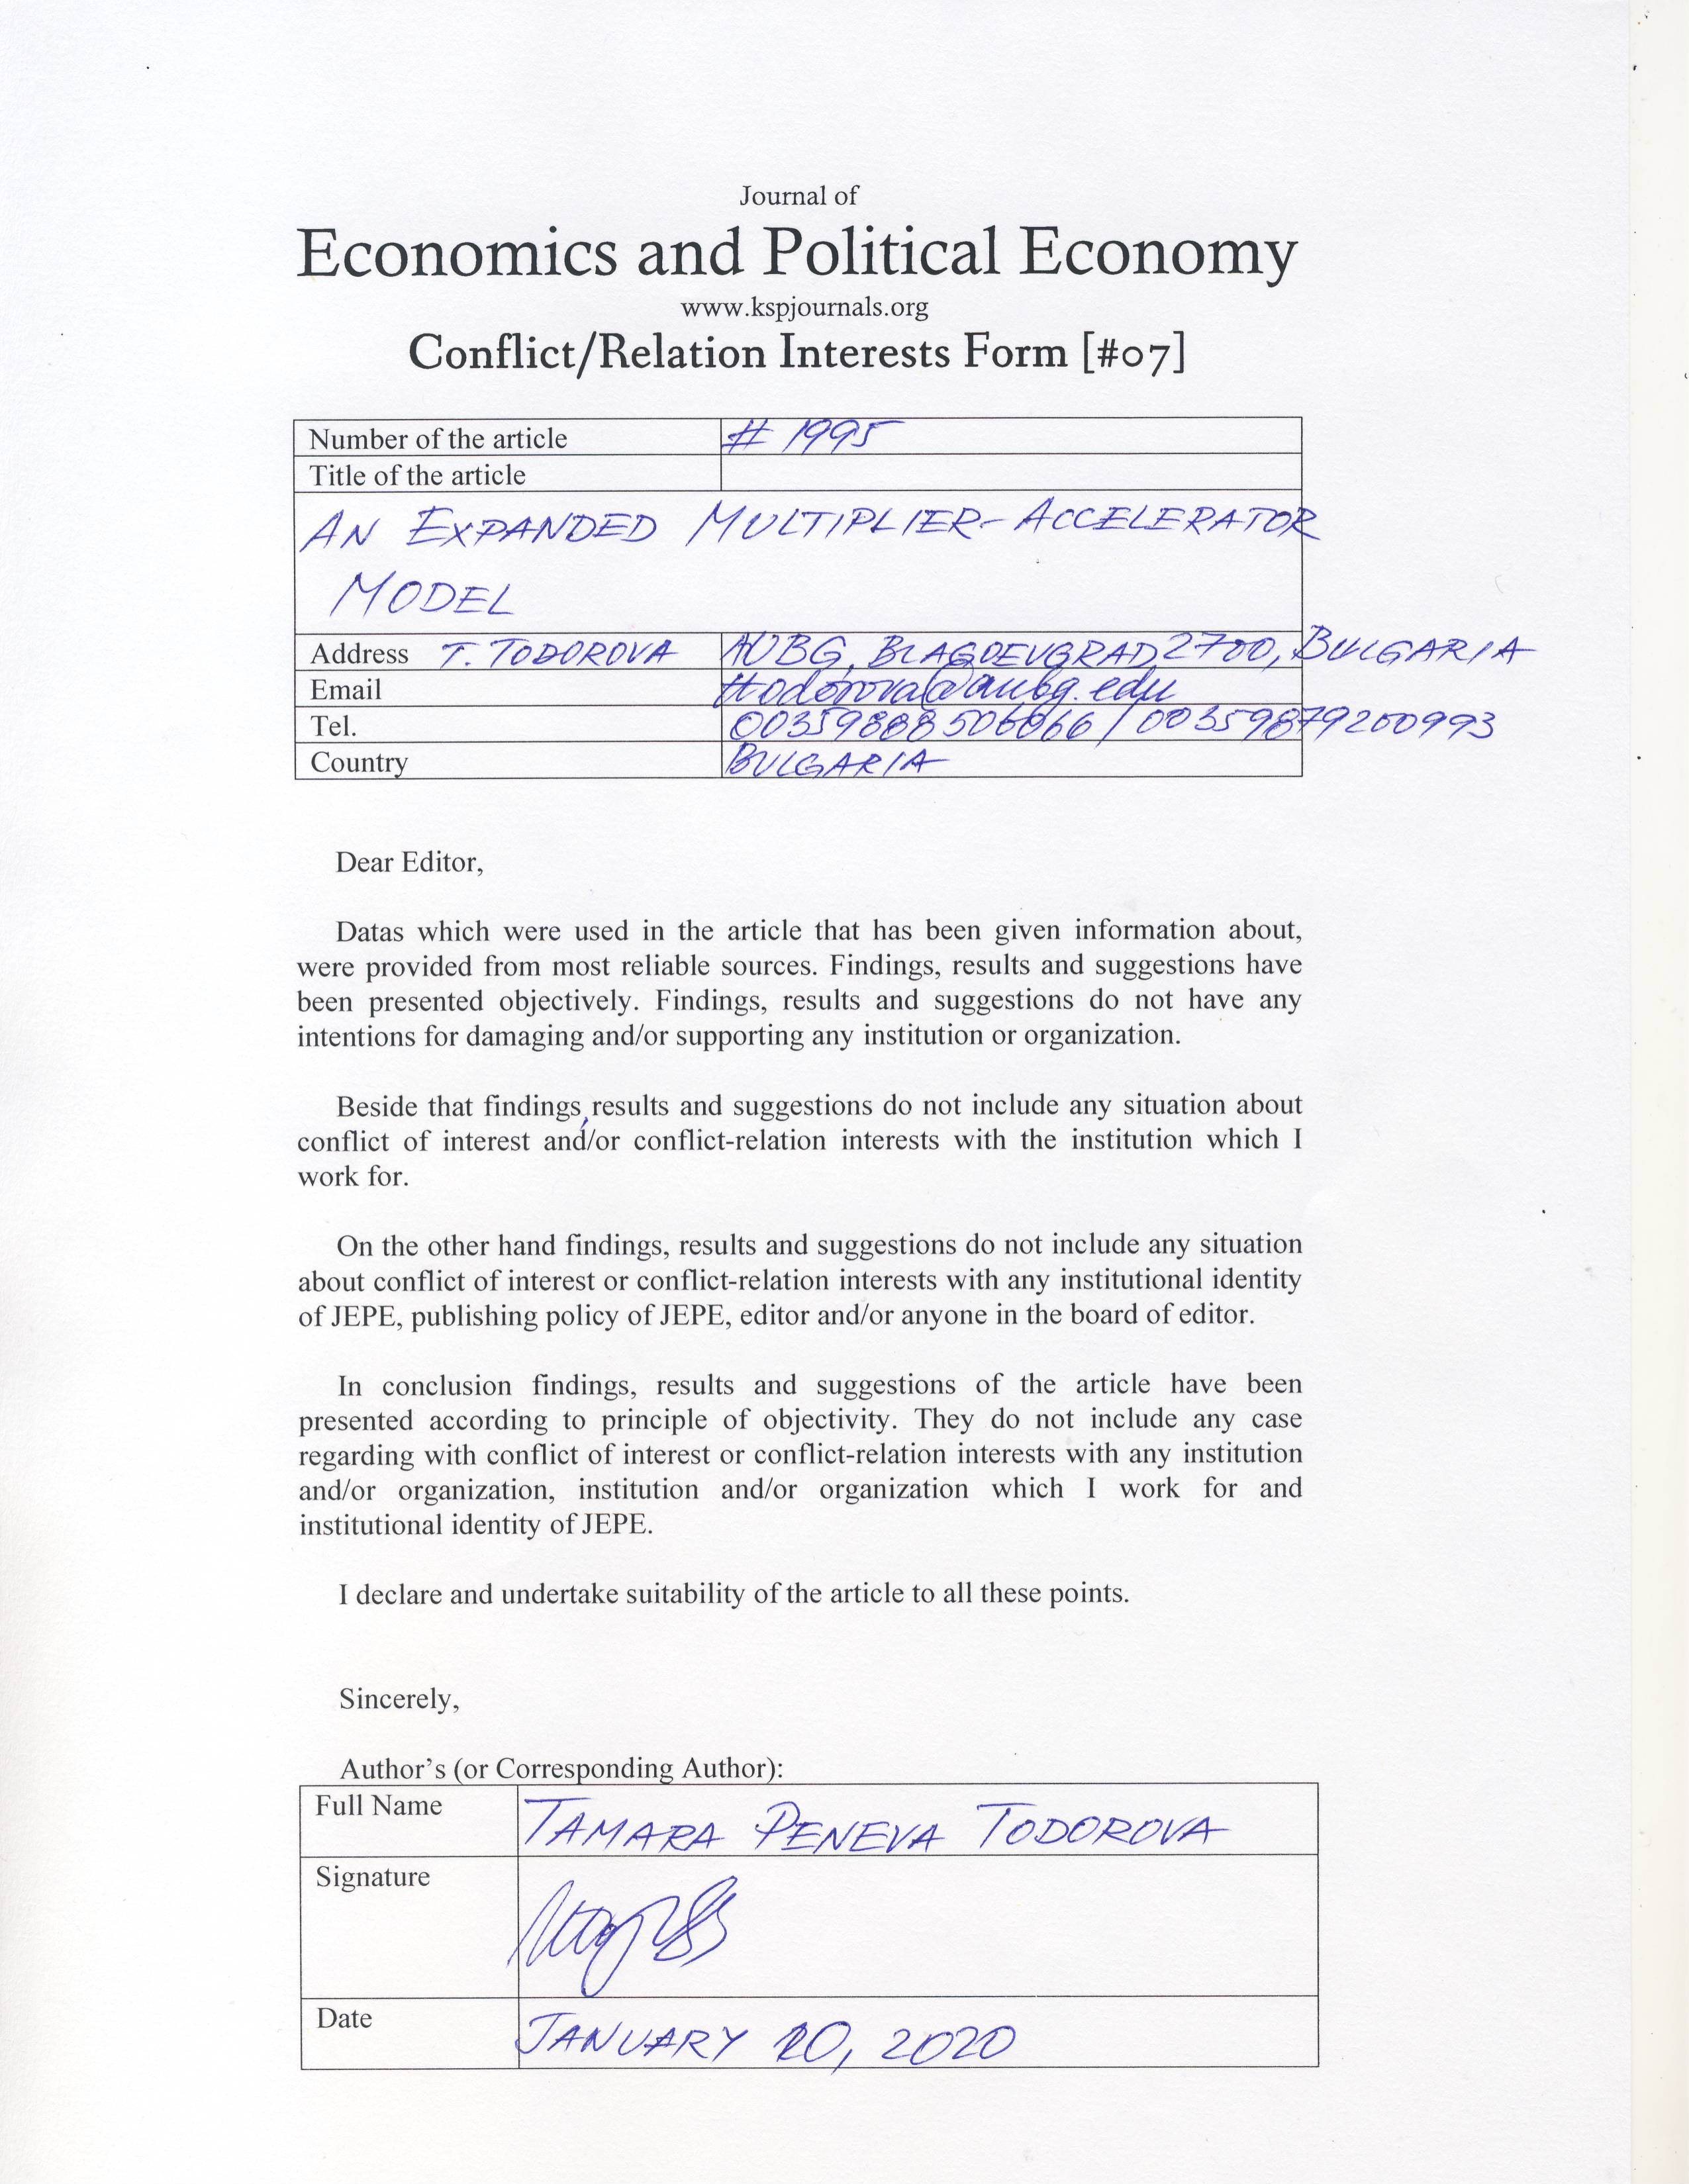 Journal of
Economics and Political Economy
www.kspjournals.org
Conflict/Relation Interests Form [#07]
Number of the article # 1995
Title of the article
AN EXPANDED MULTIPLIER-ACCELERATOR
MODEL
Address T. TODOROVA AUBG, BLAGOEVGRAD 2700, BULGARIA
Email ttodorova@aubg.edu
Tel. 00359888506066 / 00359879200993
Country BULGARIA
Dear Editor,
Datas which were used in the article that has been given information about,
were provided from most reliable sources. Findings, results and suggestions have
been presented objectively. Findings, results and suggestions do not have any
intentions for damaging and/or supporting any institution or organization.
Beside that findings, results and suggestions do not include any situation about
conflict of interest and/or conflict-relation interests with the institution which I
work for.
On the other hand findings, results and suggestions do not include any situation
about conflict of interest or conflict-relation interests with any institutional identity
of JEPE, publishing policy of JEPE, editor and/or anyone in the board of editor.
In conclusion findings, results and suggestions of the article have been
presented according to principle of objectivity. They do not include any case
regarding with conflict of interest or conflict-relation interests with any institution
and/or organization, institution and/or organization which I work for and
institutional identity of JEPE.
I declare and undertake suitability of the article to all these points.
Sincerely,
Author's (or Corresponding Author):
Full Name TAMARA PENEVA TODOROVA
Signature
Date JANUARY 20, 2020